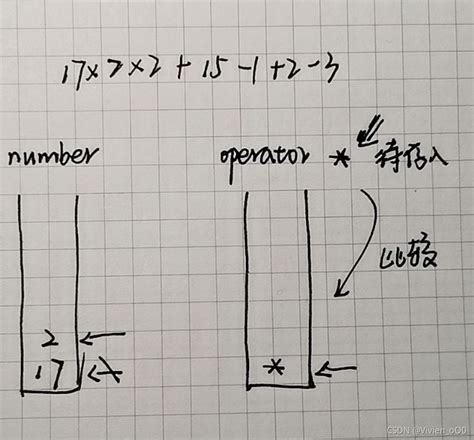 17×2×2+15-1+2-3
number operator * 待存入
比较
2 ←
17 ← * ←
CSDN @Vivien_oO0